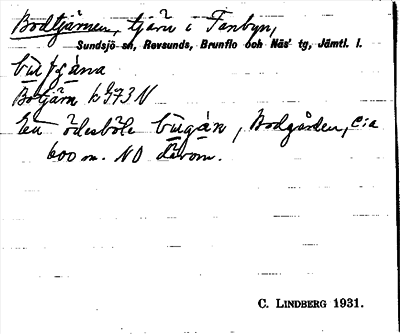 Bodtjärnen, tjärn i Fanbyn,
Sundsjö sn, Revsunds, Brunflo och Näs' tg, Jämtl. l.
Botjärn k G73 N
En ödesböle bugan, Bodgården, c:a
600 m. NO därom.
C. LINDBERG 1931.